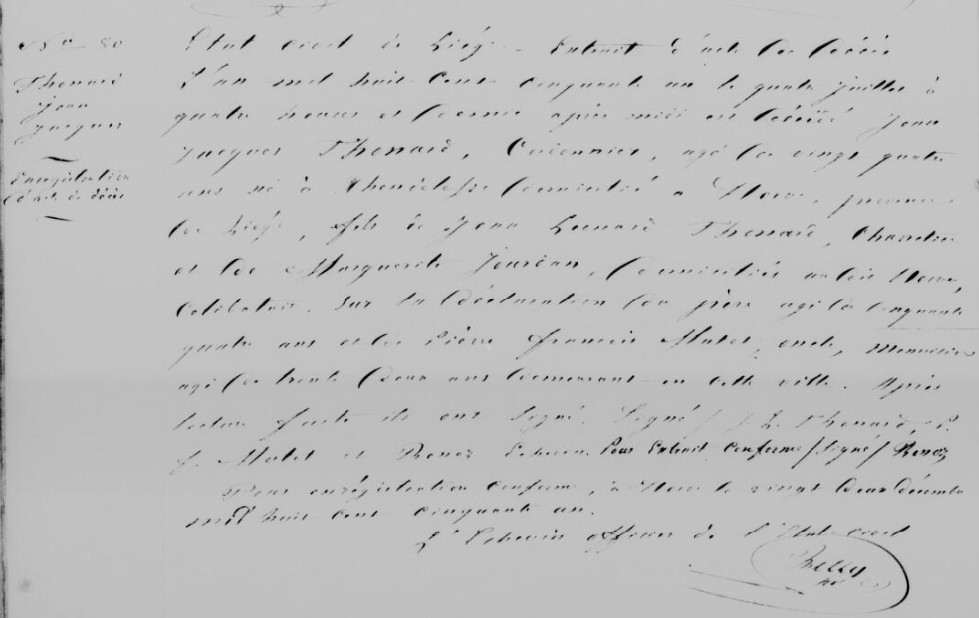 No 80
Thonard
Jean
Jacques
Enregistration
d'acte de décès
Etat civil de Liége. Extrait d'acte de décès
L'an mil huit cent cinquante un le quatre juillet à
quatre heures et demie après midi est décédé Jean
Jacques Thonard, Cordonnier, agé de vingt quatre
ans né à domicilié à Herve, province
de Liége, fils de Jean Leonard Thonard,
et de Marguerite Jourdan, domiciliés au dit Herve,
Celibataire. Sur la déclaration du père agé de cinquante
quatre ans et de Pierre francois oncle, Menuisier
agé de trente deux ans demeurant en cette ville. Après
lecture faite ils ont signé. Signé / J. L. Thonard, P.
f. et Renoz Echevin. Pour Extrait Conforme / signé / Renoz
Pour enrégistration conforme, à Herve le vingt deux décembre
mil huit cent cinquante un.
L'Echevin officier de l'Etat civil